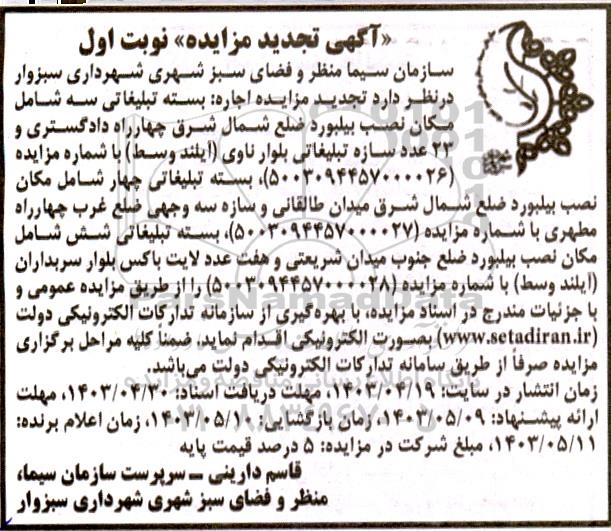 «آگهی تجدید مزایده» نوبت اول
سازمان سیما منظر و فضای سبز شهری شهرداری سبزوار
درنظر دارد تجدید مزایده اجاره: بسته تبلیغاتی سه شامل
مکان نصب بیلبورد ضلع شمال شرق چهارراه دادگستری و
۲۳ عدد سازه تبلیغاتی بلوار ناوی (آیلند وسط) با شماره مزایده
(۵۰۰۳۰۹۴۴۵۷۰۰۰۰۲۶)، بسته تبلیغاتی چهار شامل مکان
نصب بیلبورد ضلع شمال شرق میدان طالقانی و سازه سه وجهی ضلع غرب چهارراه
مطهری با شماره مزایده (۵۰۰۳۰۹۴۴۵۷۰۰۰۰۲۷)، بسته تبلیغاتی شش شامل
مکان نصب بیلبورد ضلع جنوب میدان شریعتی و هفت عدد لایت باکس بلوار سربداران
(آیلند وسط) با شماره مزایده (۵۰۰۳۰۹۴۴۵۷۰۰۰۰۲۸) را از طریق مزایده عمومی و
با جزئیات مندرج در اسناد مزایده، با بهره‌گیری از سازمانه تدارکات الکترونیکی دولت
(www.setadiran.ir) بصورت الکترونیکی اقدام نماید، ضمناً کلیه مراحل برگزاری
مزایده صرفاً از طریق سامانه تدارکات الکترونیکی دولت می‌باشد.
زمان انتشار در سایت: ۱۴۰۳/۰۴/۱۹، مهلت دریافت اسناد: ۱۴۰۳/۰۴/۳۰، مهلت
ارائه پیشنهاد: ۱۴۰۳/۰۵/۰۹، زمان بازگشایی: ۱۴۰۳/۰۵/۱۰، زمان اعلام برنده:
۱۴۰۳/۰۵/۱۱، مبلغ شرکت در مزایده: ۵ درصد قیمت پایه
قاسم دارینی ــ سرپرست سازمان سیما،
منظر و فضای سبز شهری شهرداری سبزوار
ParsNamadData